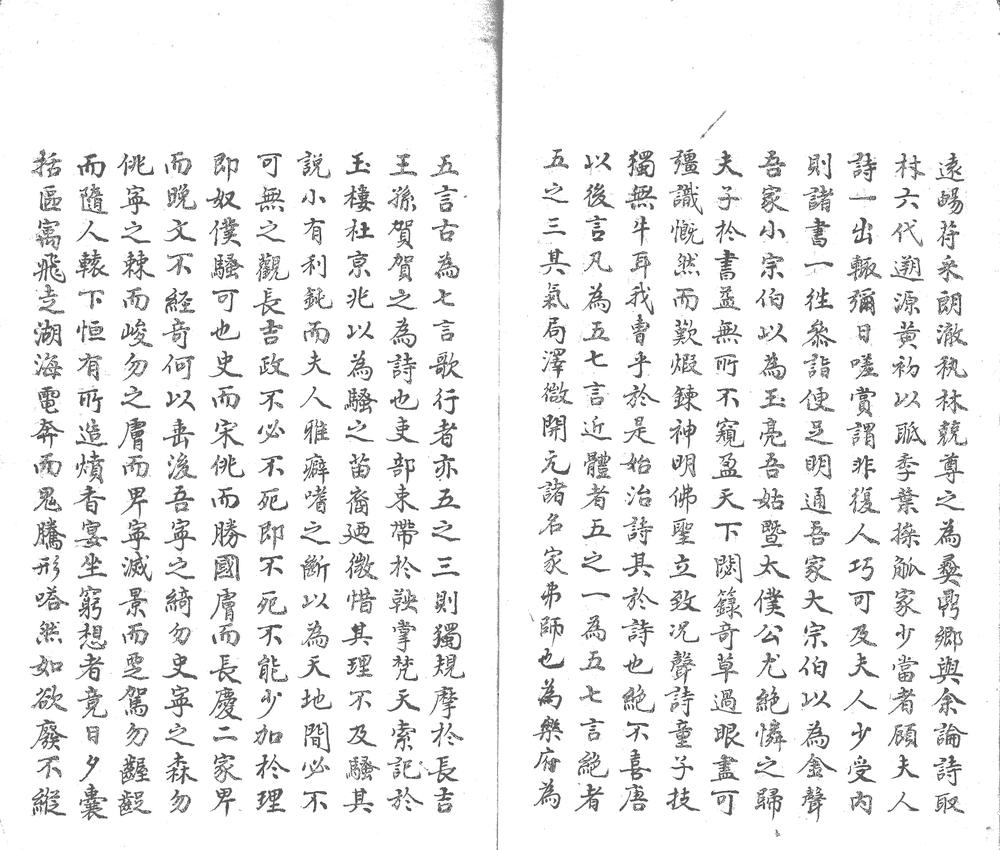 遠暢苻采朗澈秇林競尊之為彝鼎鄉與余論詩取
材六代遡源黃初以眡季葉操觚家少當者顧夫人
詩一出輙彌日嗟賞謂非復人巧可及夫人少受內
則諸書一徃叅詣便足明通吾家大宗伯以為金聲
吾家小宗伯以為玉亮吾姑暨太僕公尤絕憐之歸
夫子於書益無所不窺盈天下閟籙奇草過眼盡可
彊識慨然而歎煆鍊神明佛聖立致况聲詩童子技
獨無牛耳我曺乎於是始治詩其於詩也絕不喜唐
以後言凡為五七言近體者五之一為五七言絕者
五之三其氣局澤微開元諸名家弗師也為樂府為
五言古為七言歌行者亦五之三則獨規摩於長吉
王孫賀賀之為詩也吏部束帶於鞅掌梵天索記於
玉樓杜京兆以為騷之苗裔廼微惜其理不及騷其
說小有利鈍而夫人雅癖嗜之斷以為天地間必不
可無之觀長吉政不必不死即不死不能少加於理
即奴僕騷可也史而宋佻而勝國膚而長慶二家畀
而晚文不經奇何以垂後吾寧之綺勿史寧之森勿
佻寧之棘而峻勿之膚而畀寧滅景而歪駕勿齷齪
而隨人轅下恒有所造燌香宴坐窮想者竟日夕囊
括區寓飛走湖海電奔而鬼騰形嗒然如欲廢不縱